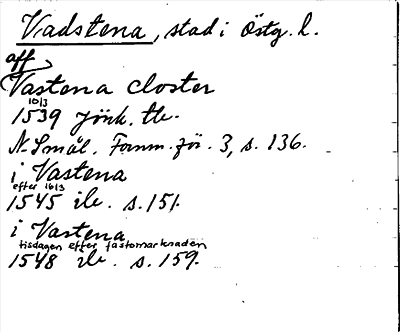 Vadstena, stad i Östg. l.
aff
Vastena closter
10/3
1539 Jönk. tb.
N. Smål. Fornm. för. 3, s. 136.
i Vastena
efter 10/3
1545 ib. s. 151.
i Vastena
tisdagen efter fastomarknaden
1548 ib. s. 159.